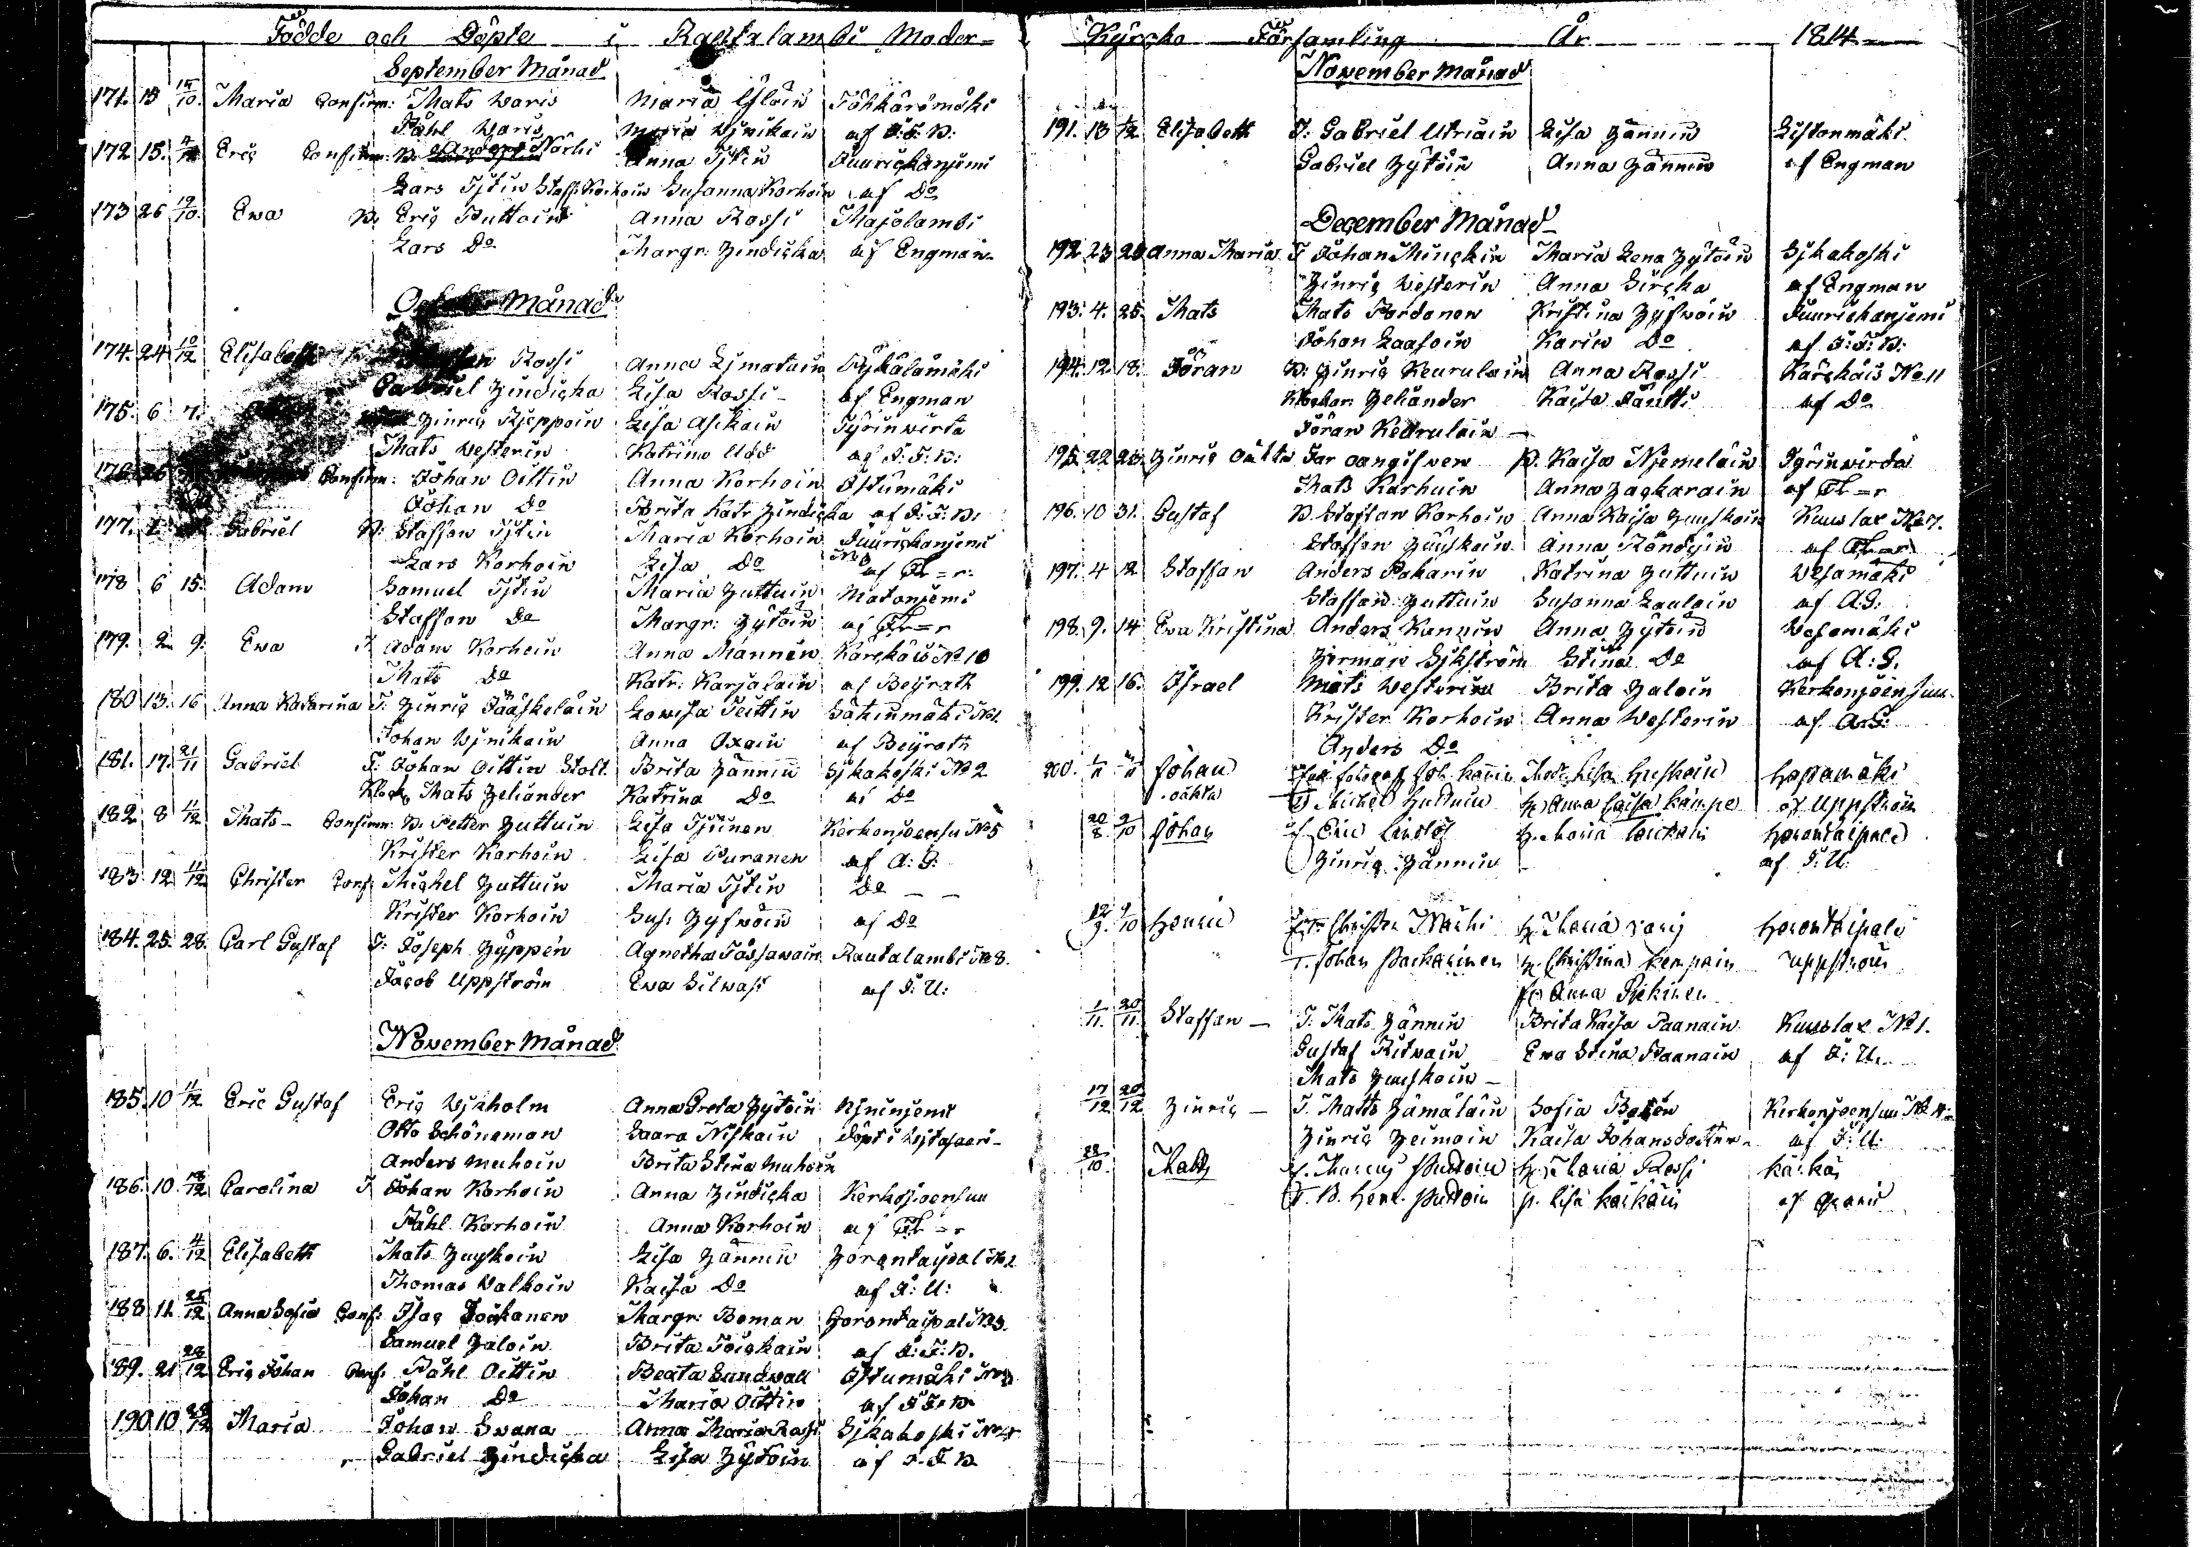 Födde och Döpte i Rautalambi Moder=
September Månad
171. 13 15/10. Maria Confirm: Mats Waris Maria Ylöin Töhkärimäki
Påhl Waris Maria Wjnikain af J: F: B:
172 15. Eric Confirm: B. Anders Närhi Anna Tjtin Juurickanjemi
Lars Tjtin Staff: Korhoin Susanna Korhoin af Do
173 26 19/10. Ewa B. Eric Puttoin Anna Rossi Majolambi
Lars Do Margr: Hindicka af Engman
October Månad
174. 24 10/12 Elisabeth Rossi Anna Ljmatain Pykälämäki
Gabriel Hindicka Lisa Rossi af Engman
175. 6 7. Hinric Rjeppoin Lisa Asikain Tyrinwirta
Mats Westerin Katrina Udd af J: F: B:
176. Confirm: Johan Oittin Anna Korhoin Istumäki
Johan Do Brita Katr Hindicka af J: F: B:
177. Gabriel B: Staffan Tjtin Maria Korhoin Juurickanjemi
Lars Korhoin Lisa Do af Fl=r:
178 6 15. Adam Samuel Tjtin Maria Huttuin Matonjemi
Staffan Do Margr: Hytöin af Fl=r
179. 2 9. Ewa T Adam Korhoin Anna Mannin Karckäis No 10
Mats Do Katr: Karjalain af Beyrath
180 13. 16 Anna Katarina T. Hinric Jääskeläin Lowisa Teittin Säkinmäki No 1.
Johan Wjnikain Anna Oxain af Beyrath
181. 17. 21/11 Gabriel T: Johan Oittin Stolt Brita Hännin Sjkakoski No 2
Klock: Mats Helander Katrina Do af Do
182 8 11/12 Mats Confirm: B. Petter Huttuin Lisa Tjtinen Kerkonjoensu No 5
Krister Korhoin Lisa Puranen af A: G:
183. 12 11/12 Christer Conf: Michel Huttuin Maria Tjtin Do
Krister Korhoin Sus: Hyfwöin af Do
184. 25. 28. Carl Gustaf T: Joseph Hyppén Agnetha Tossawain Rautalambi No 8.
Jacob Uppström Ewa Silwast af J: U:
November Månad
185. 10 11/12 Eric Gustaf Eric Wjkholm Anna Greta Hytöin Njninjemi
Otto Schöneman Saara Niskain döpt i Wjtasaari
Anders Muhoin Brita Stina Muhoin
186. 10. 18/12 Carolina T Johan Korhoin Anna Hindicka Kerkojoensuu
Påhl Korhoin Anna Korhoin af Fl=r
187. 6. 4/12 Elisabeth Mats Huuskoin Lisa Hännin Horontaipal No 2
Thomas Walkoin Kaisa Do af J: U:
188 11. 25/12 Anna Sofia Conf: Isac Toikanen Margr: Boman Horontaipal No 3.
Samuel Haloin Brita Toickain af J: F: B.
189. 21 28/12 Eric Johan Conf: Påhl Oittin Beata Sundwall Istumäki No
Johan Do Maria Oittin af J F. B.
190 10 28/12 Maria Johan Swana Anna Maria Rossi Sjkakoski No
Gabriel Hindicka Lisa Hytöin af J. F. B.
Kÿrcko Församling År 1814
November Månad
191. 13 1/12 Elisabeth T: Gabriel Utriain Lisa Hännin Listonmäki
Gabriel Hytöin Anna Hännin af Engman
December Månad
192. 23 26 Anna Maria T Johan Minckin Maria Lena Hytöin Sjkakoski
Hinric Westerin Anna Sircka af Engman
193. 4. 25. Mats Mats Pardanen Kristina Hyfwöin Juurickanjemi
Johan Laasoin Karin Do af J: F: B:
194. 12 18. Jöran B: Hinric Keurulain Anna Rossi Karckäis No 11
Klockar: Helander Kaisa Jäntti af Do
Jöran Keurulain
195. 22 26. Hinric oäkta Far oangifwen P. Kaisa Njemeläin Tyrinwirda
Mats Karhuin Anna Hackarain af Fl=r
196. 10 31. Gustaf B. Staffan Korhoin Anna Kaisa Huuskoin Kuuslax No 7.
Staffan Huuskoin Anna Röndyin af Fl=r
197. 4 12 Staffan Anders Pakarin Katrina Huttuin Wesamäki
Staffan Huttuin Susanna Laulain af A: G:
198. 9. 14 Ewa Kristina Anders Kannin Anna Hytöin Wesamäki
Herman Sjkström Stina Do af A: G.
199. 12 16. Israel Mats Westerin Brita Haloin Kerkonjoensuu
Krister Korhoin Anna Westerin af A: G:
Anders Do
200. Johan Lisa Huskoin Hostamäki
oäkta Michel Huttuin Anna Caisa Kämpe af Uppström
20/8 9/10 Johan Eric Lindlöf H. Maria Horontaipale
Hinric Hännin af J: U:
12/9 9/10 Henric Christer Närhi H. Maria Varis Horontaipale
T. Johan Packarinen H. Christina Kempain Uppström
Anna Pjekinen
1/11. 20/11. Staffan T: Mats Hännin Brita Kaisa Paanain Kuuslax No 1.
Gustaf Ritwain Ewa Stina Paanain af J: U.
Mats Huuskoin
17/12 20/12 Hinric T. Matts Hämäläin Sofia Bovin Kerkonjoensuu No 4
Hinric Heimoin Kaisa Johansdotter af J: U:
28/10. Mats Marcus Puttoin H. Maria Rossi Kärkäs
T. B. Henr. Puttoin P. Lisa Kärkäin af